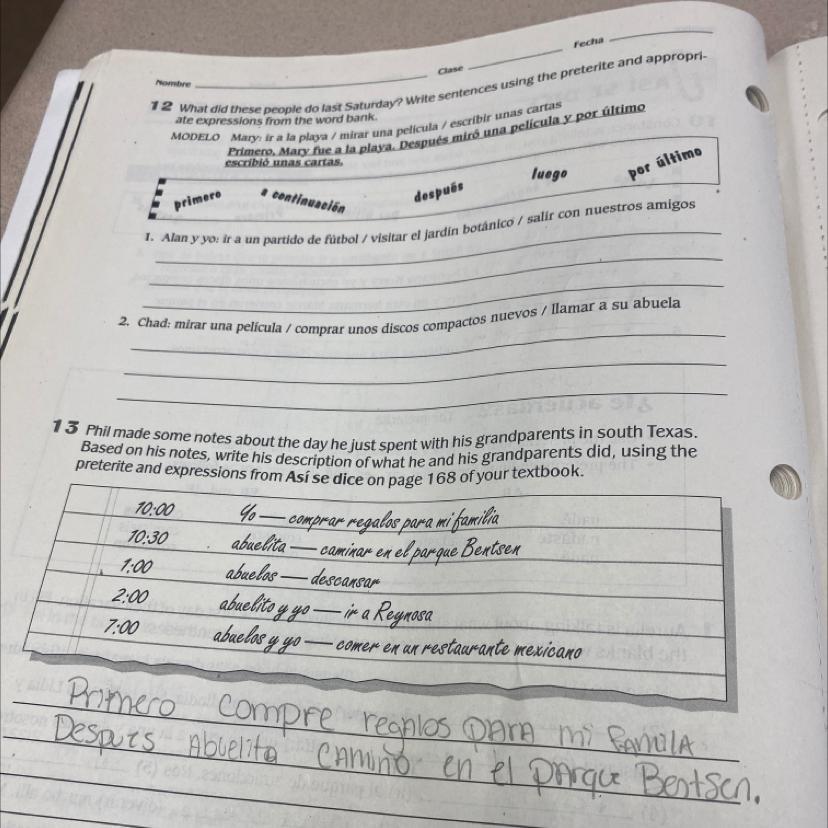 Nombre Clase Fecha
12 What did these people do last Saturday? Write sentences using the preterite and appropri-
ate expressions from the word bank.
MODELO Mary: ir a la playa / mirar una película / escribir unas cartas
Primero, Mary fue a la playa. Después miró una película y por último
escribió unas cartas.
primero a continuación después luego por último
1. Alan y yo: ir a un partido de fútbol / visitar el jardín botánico / salir con nuestros amigos
2. Chad: mirar una película / comprar unos discos compactos nuevos / llamar a su abuela
13 Phil made some notes about the day he just spent with his grandparents in south Texas.
Based on his notes, write his description of what he and his grandparents did, using the
preterite and expressions from Así se dice on page 168 of your textbook.
10:00 Yo — comprar regalos para mi familia
10:30 abuelita — caminar en el parque Bentsen
1:00 abuelos — descansar
2:00 abuelito y yo — ir a Reynosa
7:00 abuelos y yo — comer en un restaurante mexicano
Primero compre regalos para mi familia
Despues Abuelita camino en el parque Bentsen.